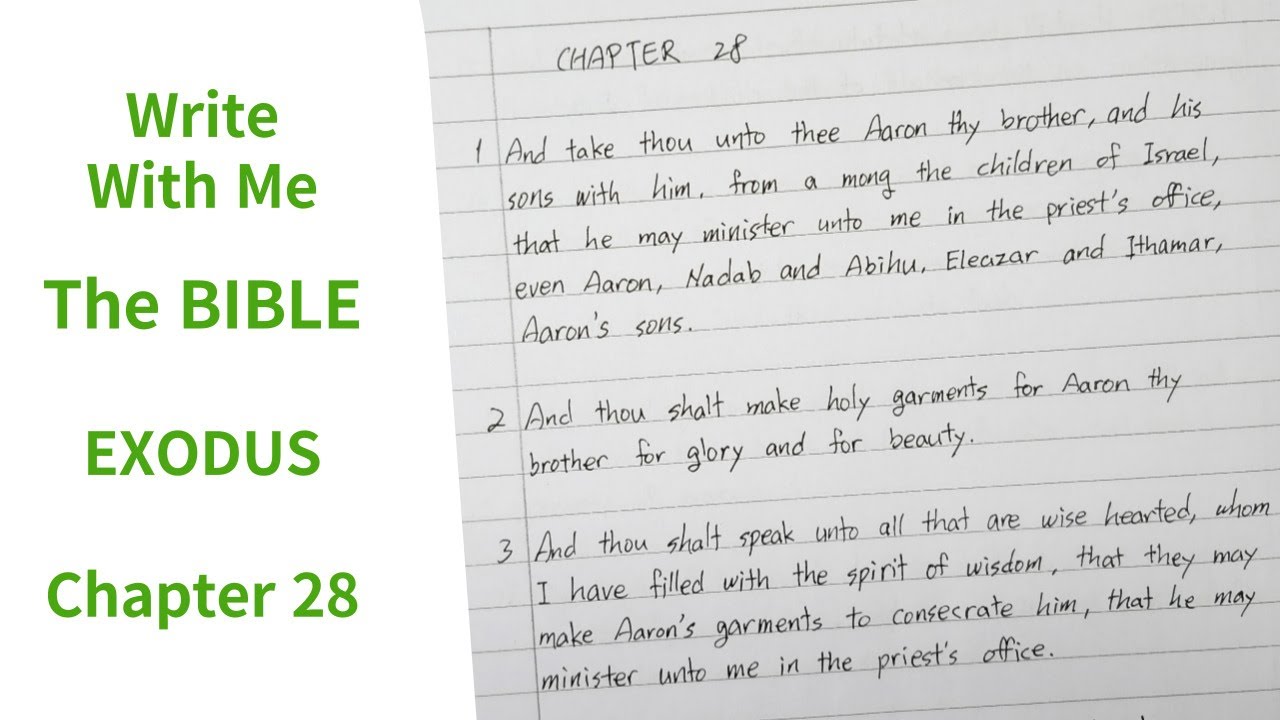 Write
With Me
The BIBLE
EXODUS
Chapter 28
CHAPTER 28
1 And take thou unto thee Aaron thy brother, and his
sons with him, from a mong the children of Israel,
that he may minister unto me in the priest's office,
even Aaron, Nadab and Abihu, Eleazar and Ithamar,
Aaron's sons.
2 And thou shalt make holy garments for Aaron thy
brother for glory and for beauty.
3 And thou shalt speak unto all that are wise hearted, whom
I have filled with the spirit of wisdom, that they may
make Aaron's garments to consecrate him, that he may
minister unto me in the priest's office.